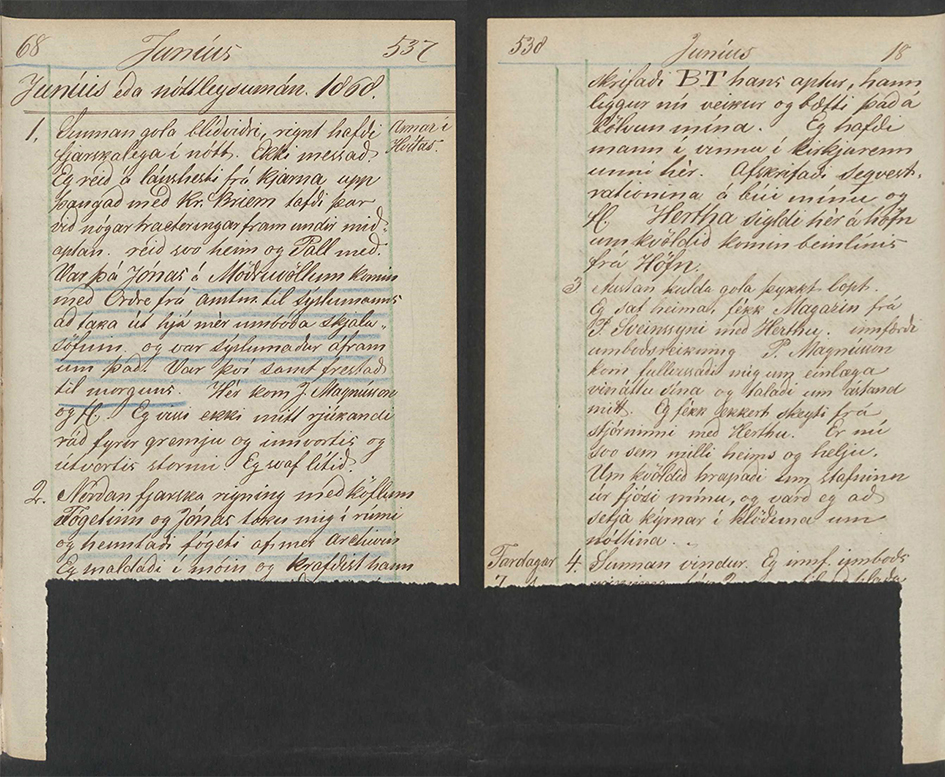 68 Júníus 537
Júníus eða nóttleysumán. 1868.
1. Sunnan gola bliðviðri, rignt hafði
Annar í
Hvítas.
fjarskalega í nótt. Ekki messað
Eg reið á láushesti frá Kjarna upp
þangað með Kr. Briem tafði þar
við nógar tracteringar fram undir mið-
aptan. reið svo heim og Páll með.
Var þá Jónas á Möðruvöllum komin
með Ordre frá amtm. til syslumanns
að taka út hjá mér umboðs skjala-
söfnin og var syslumaður áfram
um það. Var því samt frestað
til morguns. Hér kom J. Magnússon
og H. Eg vissi ekki mitt rjúkandi
ráð fyrer gremju og innvortis og
útvortis stormi Eg svaf lítið.
2. Norðan fjarska rigning með köflum
Fógetinn og Jónas tóku mig í rúmi
og heimtaði fógeti af mér Archivin
Eg maldaði í móin og krafðist hann
538 Júníus 18
skrifaði BT hans aptur, hann
liggur nú veikur og bætti það á
bölvun mína. Eg hafði
mann í vinnu í kirkjurenn
unni hér. Afskrifaði seqvest-
rationina á búi mínu og
H. Hertha sigldi hér á höfn
um kvöldið komin beinlínis
frá Höfn.
3 Austan kulda gola þykkt lopt.
Eg saf heima, fékk Magazin frá
P Sveinssyni með Herthu. innfærði
umboðsreikning P. Magnússon
kom fullvissaði mig um einlæga
vináttu sína og talaði um ástand
mitt. Eg fékk ekkert skeyti frá
stjórninni með Herthu. Er nú
svo sem milli heims og helju.
Um kvöldið hrapaði um stafninn
úr fjósi mínu, og varð eg að
setja kýrnar í hlöðuna um
nóttina.
Fardagar 4. Sunnan vindur. Eg innf. umboðs